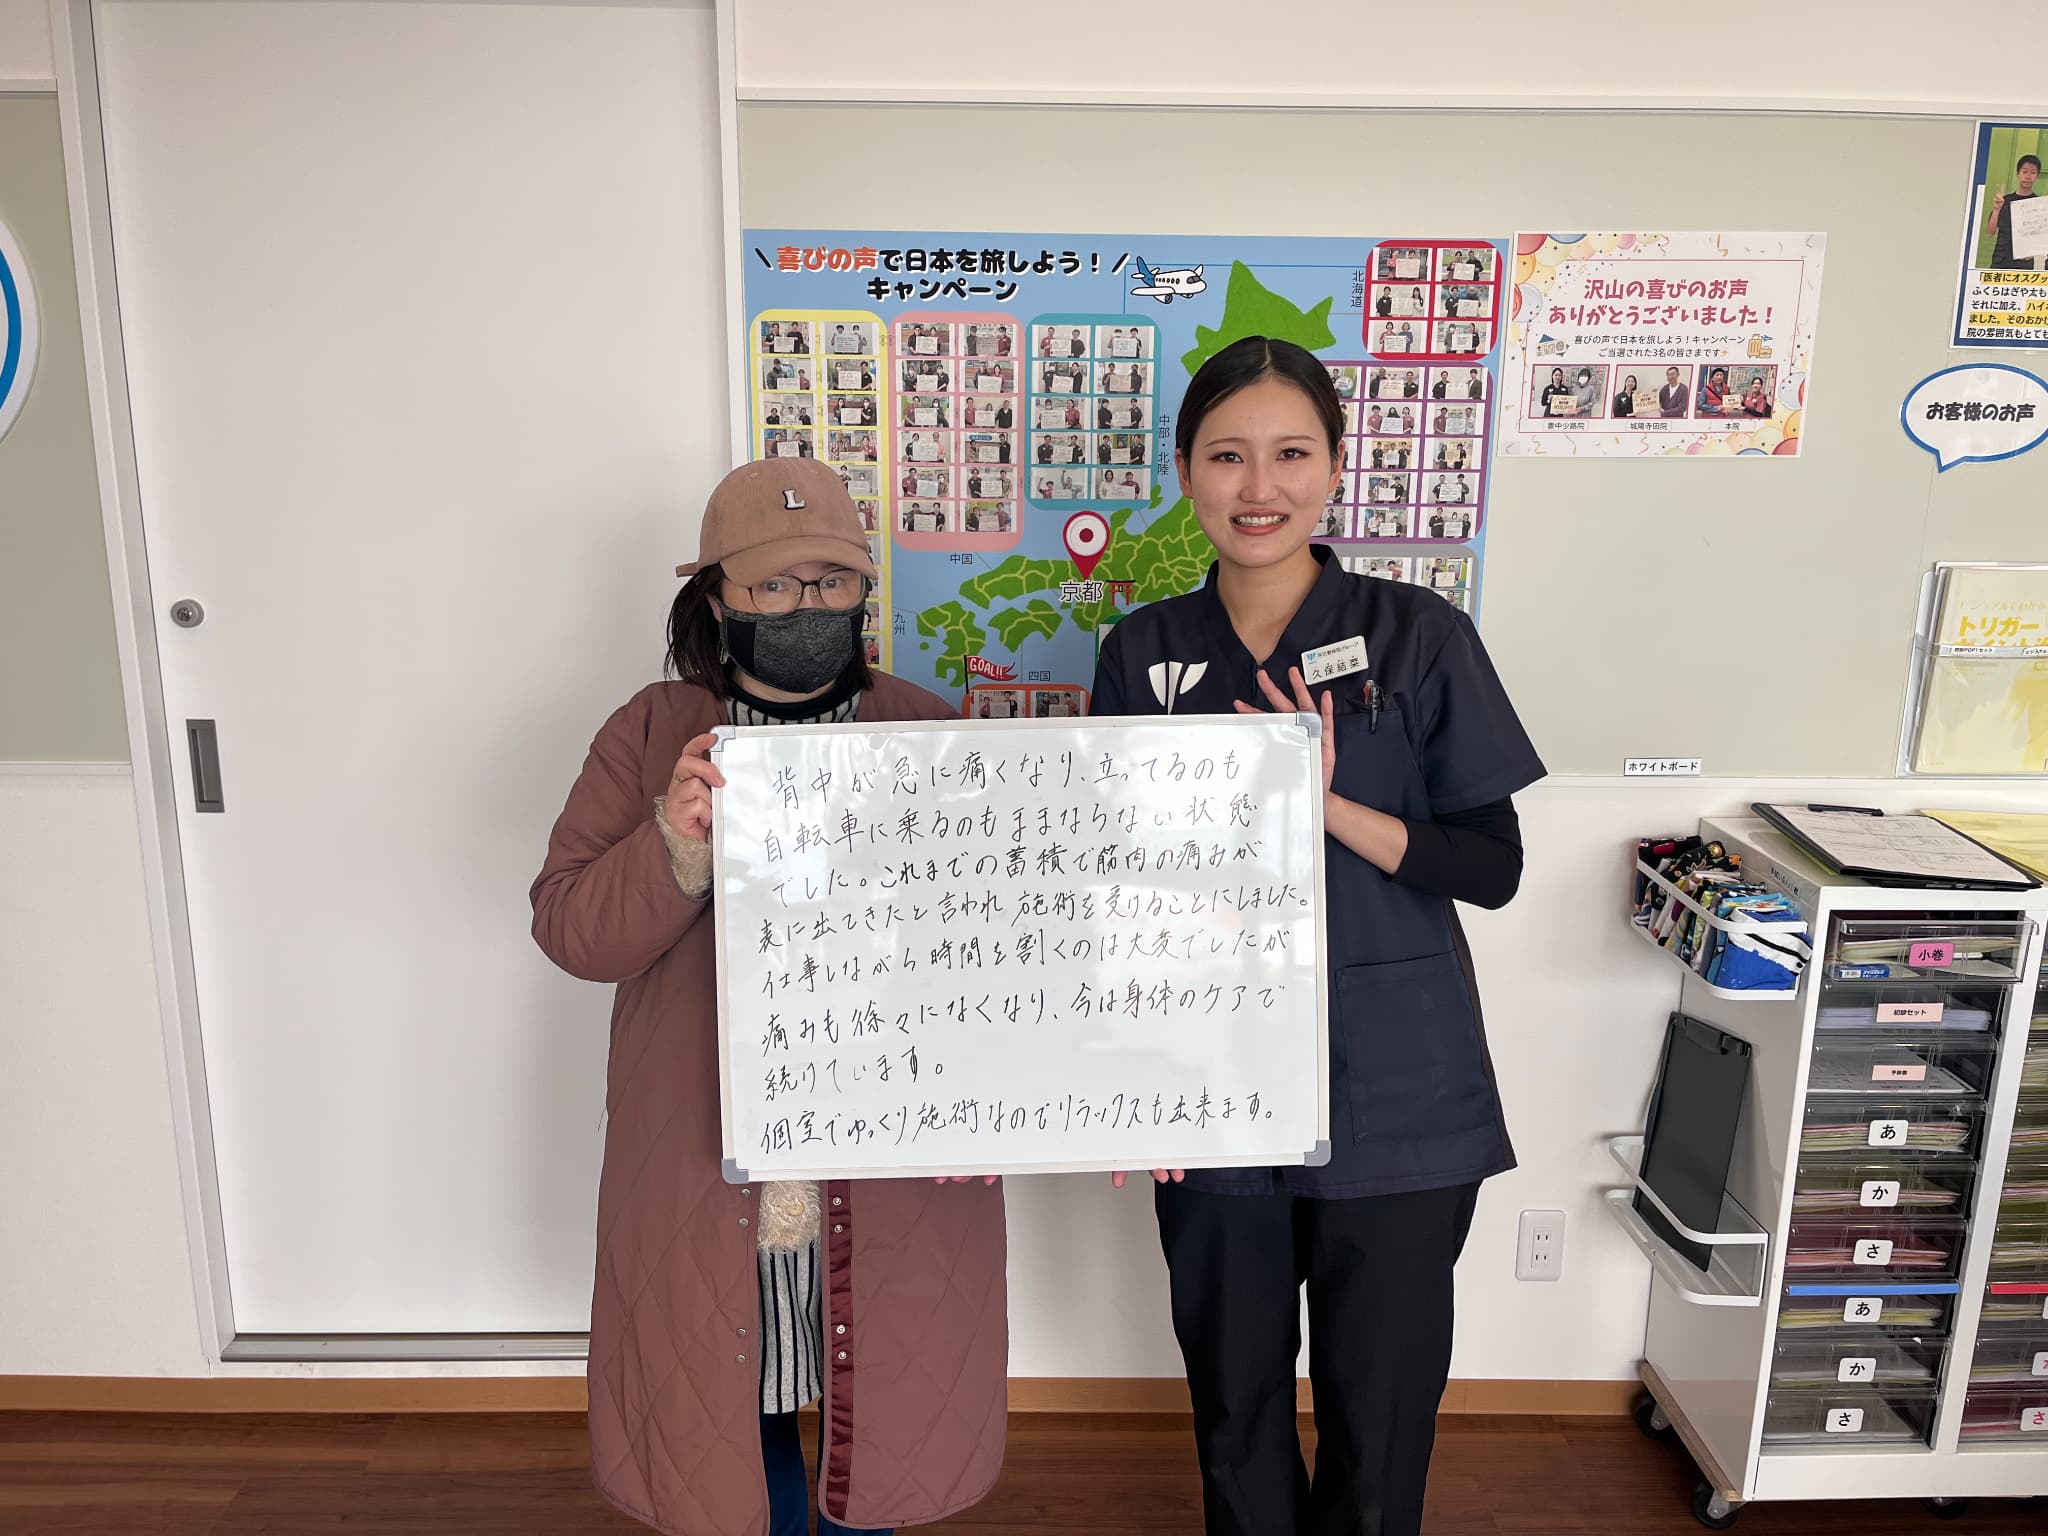 \喜びの声で日本を旅しよう！/
キャンペーン
北海道
中部・北陸
中国
京都
九州
GOAL!!
四国
沢山の喜びのお声
ありがとうございました！
喜びの声で日本を旅しよう！キャンペーン
ご当選された3名の皆さまです
豊中少路院
城陽寺田院
本院
「医者にオスグッ
ふくらはぎや太も
それに加え、ハイ
ました。そのおか
院の雰囲気もとても
お客様のお声
L
久保結菜
背中が急に痛くなり、立ってるのも
自転車に乗るのもままならない状態
でした。これまでの蓄積で筋肉の痛みが
表に出てきたと言われ施術を受けることにしました。
仕事しながら時間を割くのは大変でしたが
痛みも徐々になくなり、今は身体のケアで
続けています。
個室でゆっくり施術なのでリラックスも出来ます。
ホワイトボード
トリガー
初診POP1セット
小巻
初診セット
予診票
あ
か
さ
あ
か
さ